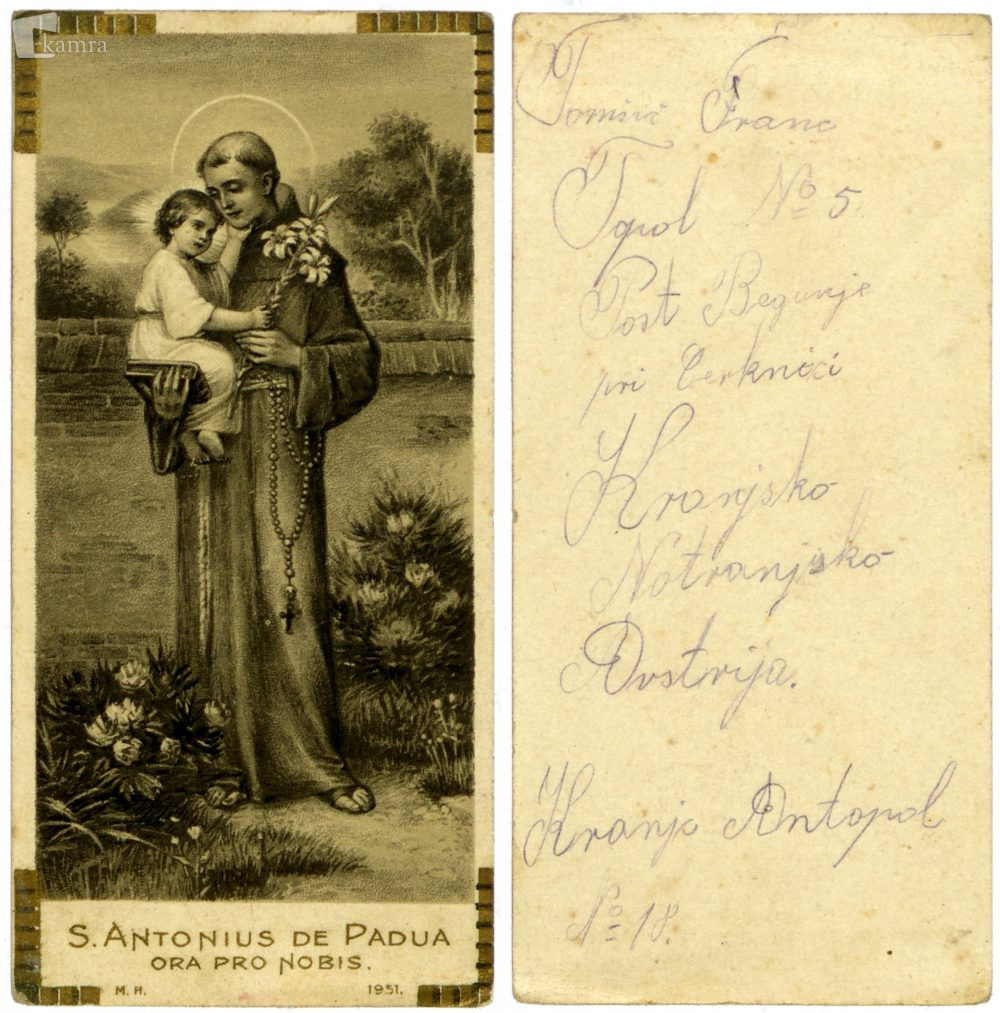 kamra
S. ANTONIUS DE PADUA
ORA PRO NOBIS.
M. H. 1951.
Tomšič Franc
Topol No 5.
Post Begunje
pri Cerknici
Kranjsko
Notranjsko
Avstrija.
Kranjc Antopol
No 18.